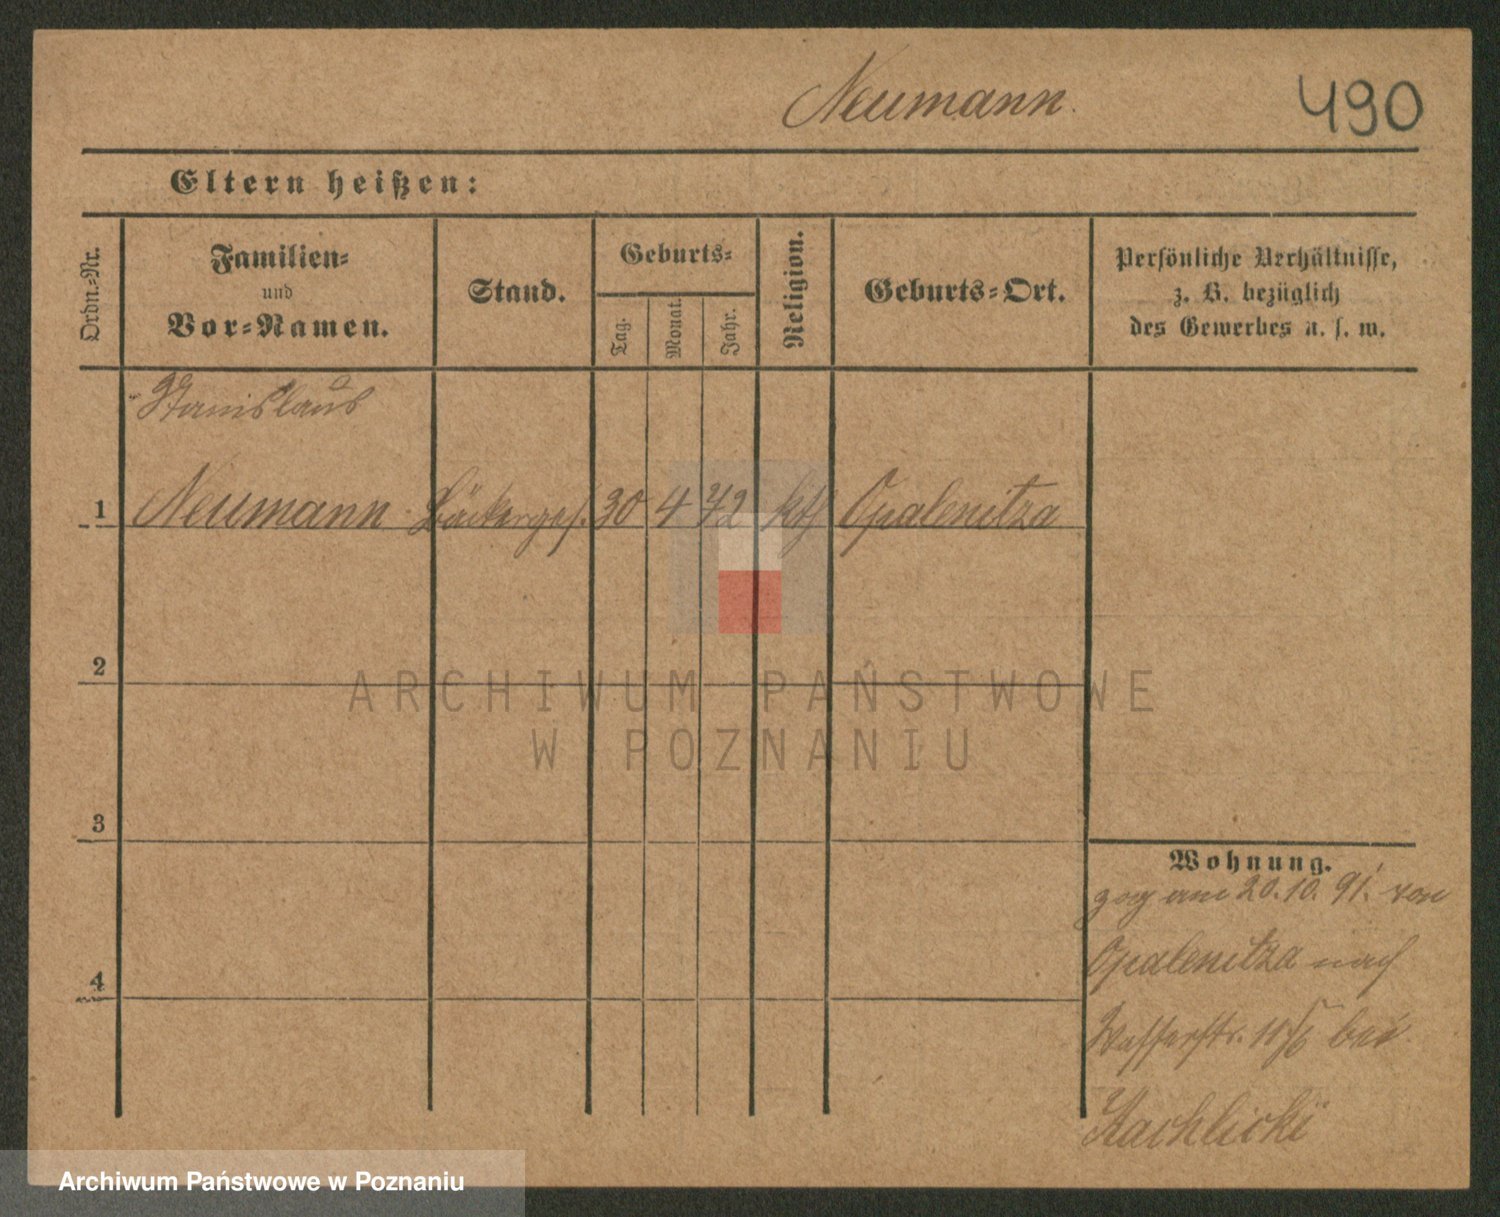 Neumann.
490
Eltern heißen:
Ordn.-Nr.
Familien-
und
Vor-Namen.
Stand.
Geburts-
Tag.
Monat.
Jahr.
Religion.
Geburts-Ort.
Persönliche Verhältnisse,
z. B. bezüglich
des Gewerbes u. s. w.
Stanislaus
1 Neumann Bäckerges. 30 4 72 kth Opalenitza
2
3
4
Wohnung.
zog am 20.10.91. von
Opalenitza nach
Wasserstr. bei
ARCHIWUM PAŃSTWOWE
W POZNANIU
Archiwum Państwowe w Poznaniu